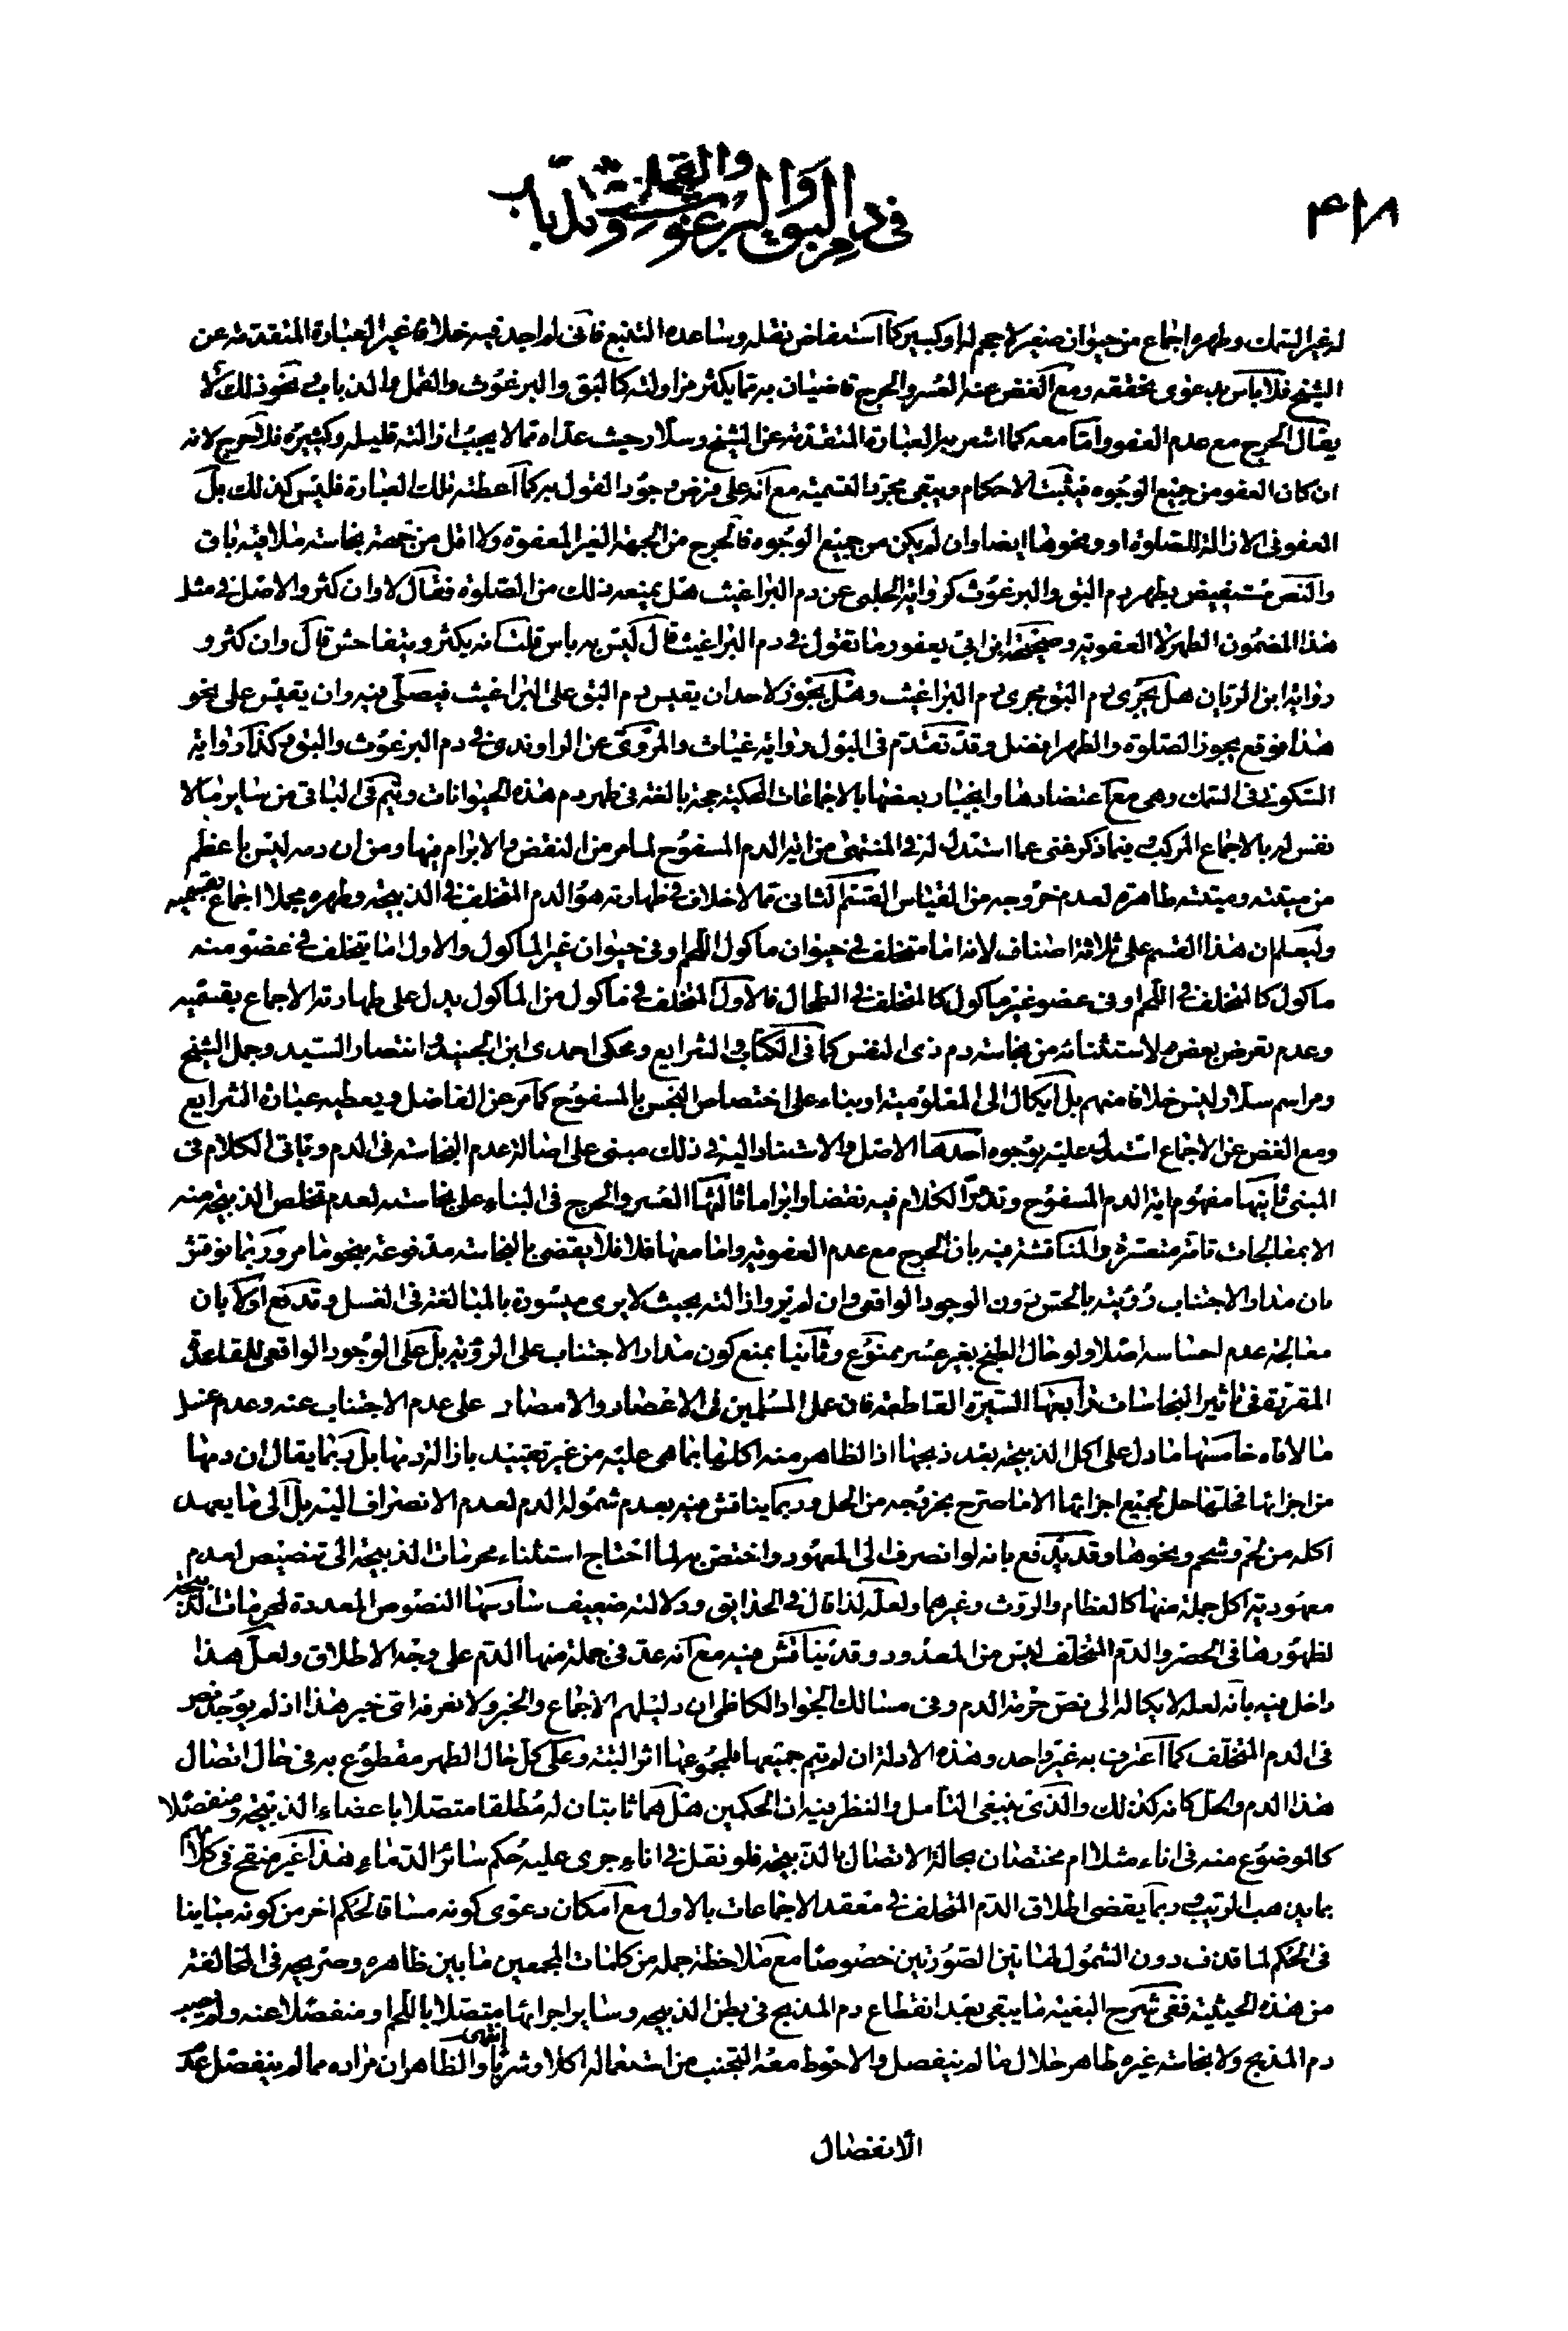 ٤١٨
في دم البق والبرغوث والقمل والذباب
له غير السمك وطهره اجماع من حيوان صغير لا حجم له او كبير كما استفاض نقله وساعده التتبع فاني لم اجد فيه خلافا غير العبارة المتقدمة عن
الشيخ فلا باس بدعوى تحققه ومع الغض عنه العسر والحرج قاضيان به مما يكثر مزاولته كالبق والبرغوث والقمل والذباب ونحو ذلك لا
يقال الحرج مع عدم العفو واما معه كما اشعر به العبارة المتقدمة عن الشيخ وسلار حيث عداه مما لا يجب ازالته قليله وكثيره فلا حرج لانه
ان كان العفو من جميع الوجوه فيثبت الاحكام ويبقى مجرد التسمية مع انه على فرض وجود القول به كما اعطته تلك العبارة فليس كذلك بل
العفو في الازالة للصلوة او ونحوها ايضا وان لم يكن من جميع الوجوه فالحرج من الجهة الغير المعفوة ولا اقل من جهة نجاسة ملاقيه باق
والنص مستفيض بطهر دم البق والبرغوث كرواية الحلبي عن دم البراغيث هل يمنعه ذلك من الصلوة فقال لا وان كثر والاصل في مثل
هذا المضمون الطهر لا العفوية وصحيحة ابن ابي يعفور ما تقول في دم البراغيث قال ليس به باس قلت انه يكثر ويتفاحش قال وان كثر و
رواية ابن الريان هل يجري دم البق مجرى دم البراغيث وهل يجوز لاحد ان يقيس بدم البق على البراغيث فيصلي فيه وان يقيس على نحو
هذا فوقع يجوز الصلوة والطهر افضل وقد تقدم في البول رواية غياث والمروي عن الراوندي في دم البرغوث والبق وكذا رواية
السكوني في السمك وهي مع اعتضادها وانجبار بعضها بالاجماعات المحكية حجة بالغة في طهر دم هذه الحيوانات ويتم في الباقي من ساير ما لا
نفس له بالاجماع المركب فيما ذكر غنى عما استدل له في المنتهى من اية الدم المسفوح لما مر من النقض والابرام فيها ومن ان دمه ليس باعظم
من ميتته وميتته طاهرة لعدم خروجه من القياس القسم الثاني مما لا خلاف في طهارته هو الدم المتخلف في الذبيحة وطهره مجملا اجماع بقسميه
وليعلم ان هذا القسم على ثلاثة اصناف لانه اما متخلف في حيوان ماكول اللحم او في حيوان غير الماكول والاول اما يتخلف في عضو منه
ماكول كالمتخلف في اللحم او في عضو غير ماكول كالمتخلف في الطحال فالاول المتخلف في ماكول من الماكول يدل على طهارته الاجماع بقسميه
وعدم تعرض بعض لاستثنائه من نجاسة دم ذي النفس كما في الكتاب والشرايع ومحكي احمدي ابن الجنيد وانتصار السيد وجمل الشيخ
ومراسم سلار وليس خلافا منهم بل ايكال الى المعلومية او بناء على اختصاص النجس بالمسفوح كما مر عن الفاضل ويعطيه عبارة الشرايع
ومع الغض عن الاجماع استدل عليه بوجوه احدها الاصل والاستناد اليه في ذلك مبني على اصالة عدم النجاسة في الدم وياتي الكلام في
المبنى ثانيها مفهوم اية الدم المسفوح وقد مر الكلام فيه نقضا وابراما ثالثها العسر والحرج في البناء على نجاسته لعدم تخلص الذبيحة منه
الا بمعالجات تامة متعسرة والمناقشة فيه بان الحرج مع عدم العفوية واما معها فلا فلا يقضي بالنجاسة مدفوعة بنحو ما مر وربما نوقش
بان مدار الاجتناب رؤيته بالحس دون الوجود الواقعي وان لم ير وازالته بحيث لا يرى ميسورة بالمبالغة في الغسل وقد دفع اولا بان
معالجة عدم احساسه اصلا ولو حال الطبخ بغير عسر ممنوع وثانيا بمنع كون مدار الاجتناب على الرؤية بل على الوجود الواقعي للقاعدة
المقررة في تاثير النجاسات رابعها السيرة القاطعة فان عمل المسلمين في الاعصار والامصار على عدم الاجتناب عنه وعدم غسل
ما لاقاه خامسها ما دل على اكل الذبيحة بعد ذبحها اذ الظاهر منه اكلها بما هي عليه من غير تقييد بازالة دمها بل ربما يقال ان دمها
من اجزائها فحلها حل لجميع اجزائها الا ما صرح بخروجه من الحل وربما يناقش فيه بعدم شموله الدم لعدم الانصراف اليه بل الى ما يعهد
اكله من لحم وشحم ونحوها وقد يدفع بانه لو انصرف الى المعهود واختص به لما احتاج استثناء محرمات الذبيحة الى تنصيص لعدم
معهودية اكل جملة منها كالعظام والروث وغيرهما ولعله لذا قال في الحدايق ودلالته ضعيف سادسها النصوص المعددة لمحرمات الذبيحة
لظهورها في الحصر والدم المتخلف ليس من المعدود وقد يناقش فيه مع انه عد في جملة منها الدم على وجه الاطلاق ولعل هذا
داخل فيه بانه لعله لايكاله الى نص حرمة الدم وفي مسالك الجواد الكاظمي ان دليلهم الاجماع والخبر ولا نعرفه اي خبر هذا اذ لم يوجد نص
في الدم المتخلف كما اعترف به غير واحد وهذه الادلة ان لم يتم جميعها فلمجموعها اثر البتة وعلى كل حال الطهر مقطوع به في حال اتصال
هذا الدم والحل كانه كذلك والذي ينبغي التامل والنظر فيه ان الحكمين هل هما ثابتان له مطلقا متصلا باعضاء الذبيحة ومنفصلا
كالموضوع منه في اناء مثلا ام مختصان بحالة الاتصال بالذبيحة فلو نقل في اناء جرى عليه حكم سائر الدماء هذا غير منقح في كلامهم
بما يذهب الريب وربما يقضي اطلاق الدم المتخلف في معقد الاجماعات بالاول مع امكان دعوى كونه مساقا لحكم اخر من كونه مباينا
في الحكم لما قذف دون الشمول لهاتين الصورتين خصوصا مع ملاحظة جملة من كلمات المجمعين ما بين ظاهره وصريحه في المخالفة
من هذه الحيثية ففي شرح البغية ما يبقى بعد انقطاع دم المذبح في بطن الذبيحة وساير اجزائها متصلا باللحم او منفصلا عنه ولم يصبه
دم المذبح ولا نجاسة غيره طاهر حلال ما لم ينفصل والاحوط معه التجنب من استعماله اكلا وشربا انتهى والظاهر ان مراده مما لم ينفصل عدم
الانفصال